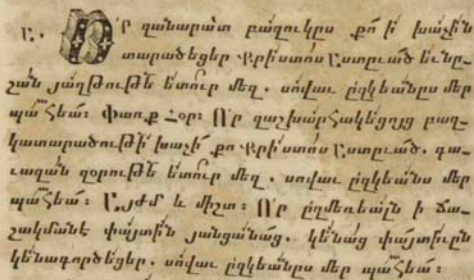 Ա. Ո՛Ր զանարատ բազուկըս քո՛ ի՛ խաչին
տարածեցեր Քրի՛ստո՛ս Աստըւած՛ և՛նը
շա՛ն յաղթութե՛ ետո՛ւր մեզ. սովաւ ըզկեա՛նըս մեր
պահեա՛։ Փառք Հօր։ Ո՛ր զաշխարհակեցոյց բազ
կատարածութի՛ խաչի՛ քո Քրի՛ստոս Աստըւած. գա
ւազա՛ն զօրութե՛ ետո՛ւր մեզ. սովաւ ըզկեա՛նս մեր
պահեա՛։ Այժմ և միշտ։ Ո՛ր ըզմեռեալն ի ճա
շակմանէ փայտին յանցանաց. կե՛նաց փայտիւըն
կե՛նագործեցեր. սովաւ ըզկեանըս մեր պահեա՛։